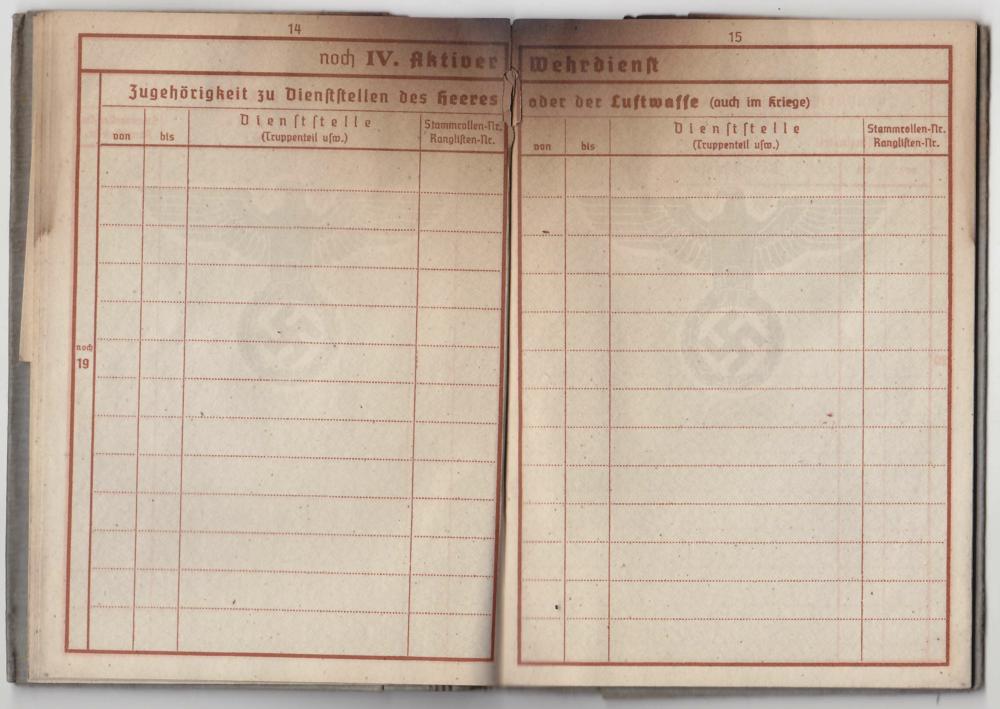 14
noch IV. Aktiver
Zugehörigkeit zu Dienststellen des Heeres
von
bis
Dienststelle
(Truppenteil usw.)
Stammrollen-Nr.
Ranglisten-Nr.
noch
19
15
Wehrdienst
oder der Luftwaffe (auch im Kriege)
von
bis
Dienststelle
(Truppenteil usw.)
Stammrollen-Nr.
Ranglisten-Nr.